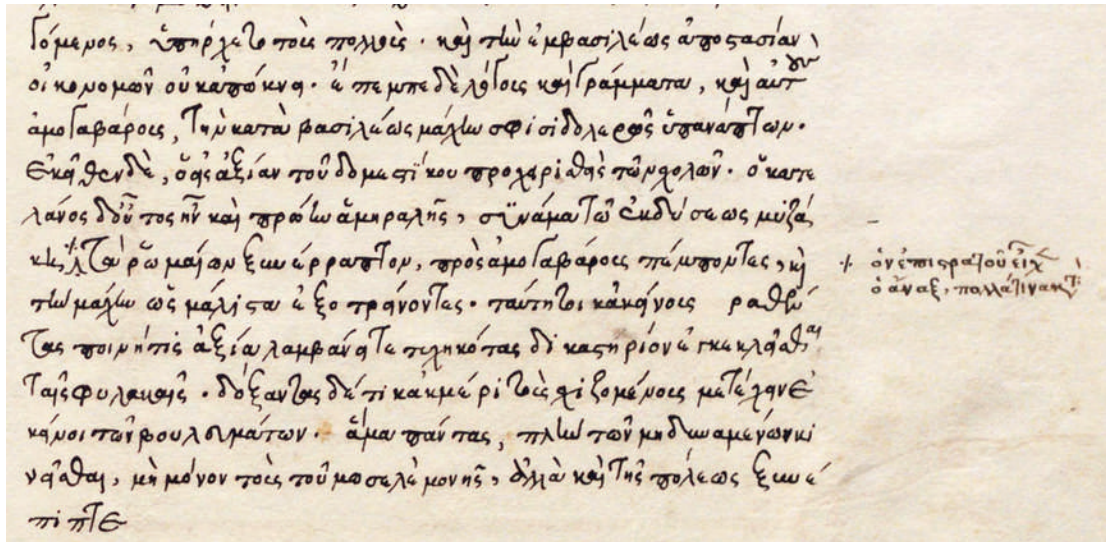 γόμενος, ὑπήρχετο τοὺς πολλοὺς. καὶ τὴν ἐμβασιλέως ἀποστασίαν
οἰκονομῶν οὐκ ἀπώκνει. ἔπεμπε δὲ λόγοις καὶ γράμματα, καὶ αὐτοῖς
ἀμογαβάροις, τὴν κατὰ βασιλέως μάχην σφίσι δολερῶς ὑπανάπτων.
ἐκεῖθεν δὲ, ὅσγε ἀξίαν τοῦ δομεστίκου προχειρισθεὶς τῶν σχολῶν. ὁ κατε
λάνος δ' οὗτος ἦν καὶ πρώην ἀμηραλῆς, σὺν ἅμα τῷ ἐκδύσεως μυζά
κις, τὰ ῥωμαίων ξυνέρραπτον, πρὸς ἀμογαβάροις πέμποντες, καὶ
τὴν μάχην ὡς μάλιστα ἐξοτρύνοντες. ταύτῃτοι κἀκείνοις ῥαθυ
τας ποινήτις ἀξία λαμβάνει
ταῖς φυλακαῖς. δόξαντας δέ τι κἀκ μέρι τοῖς χιζομένοις μετέχειν ἐ
κείνοι τῶν βουλευμάτων. ἅμα πάντας, πλὴν τῶν μὴ δυναμένων κι
νεῖσθαι, μὴ μόνον τοὺς τοῦ μοσελὲ μονῆς, ἀλλὰ καὶ τῆς πόλεως ξυνέ
πιπτε
ὃν ἐπιστρατοῦ εἶχε
ὁ ἄναξ, πολλάτινα